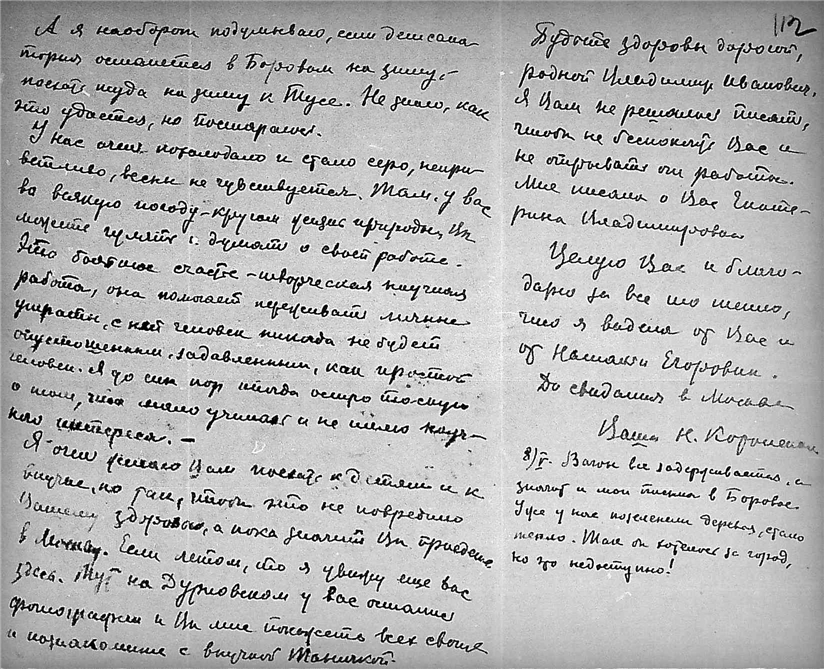 А я наоборот подумываю, если детсана-
тория останется в Боровом на зиму,
поехать туда на зиму к Тусе. Не знаю, как
это удастся, но постараюсь.
У нас очень похолодало и стало серо, непри-
ветливо, весны не чувствуется. Там, у вас
во всякую погоду – кругом природы, Вы
можете гулять и думать о своей работе.
Это большое счастье – творческая научная
работа, она помогает переживать личные
утраты, с ней человек никогда не будет
опустошенным, задавленным, как простой
человек. Я до сих пор иногда остро тоскую
о том, что мало училась и не имею науч-
ного интереса. –
Я очень желаю Вам поехать к детям и к
внучке, но так, чтобы это не повредило
Вашему здоровью, а пока значит Вы приедете
в Москву. Если летом, то я увижу еще вас
здесь. Тут на Дурновском у вас остались
фотографии и Вы мне покажете всех своих
и познакомите с внучкой Танечкой.
112
Будьте здоровы дорогой,
родной Владимир Иванович.
Я Вам не решалась писать,
чтобы не беспокоить Вас и
не отрывать от работы.
Мне писала о Вас Екате-
рина Владимировна
Целую Вас и благо-
дарю за все то тепло,
что я видела от Вас и
от Наталии Егоровны.
До свидания в Москве
Ваша Н. Короленко
8/V. Вагон все задерживается, а
значит и мои письма в Боровое.
Уже у нас позеленели деревья, стало
тепло. Так бы хотелось за город,
но это недоступно!